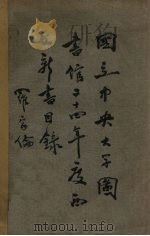 國立中央大學圖
書館二十四年度西
新書目錄
羅家倫